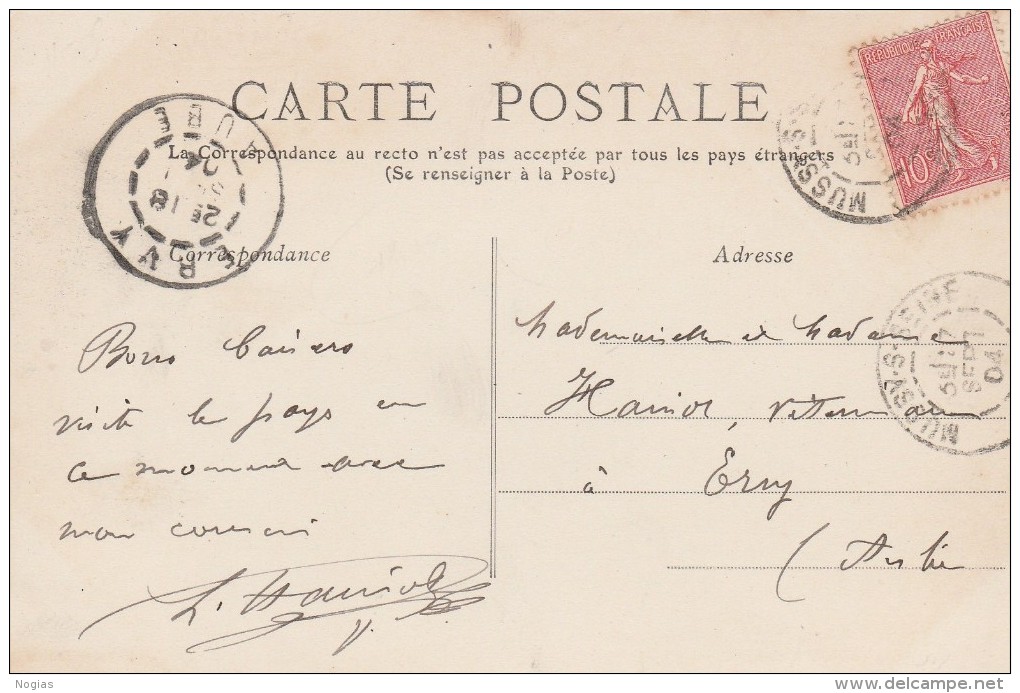 CARTE POSTALE
La Correspondance au recto n'est pas acceptée par tous les pays étrangers
(Se renseigner à la Poste)
Correspondance
Adresse
REPUBLIQUE FRANÇAISE
10 c
MUSSY-S-SEINE
SEPT
04
ERVY
AUBE
04
Bons baisers
visite le pays en
ce moment avec
mon cousin
L. Hariot
Mademoiselle et Madame
Hariot, vétérinaire
à Ervy
(Aube
Nogias
© delcampe.net